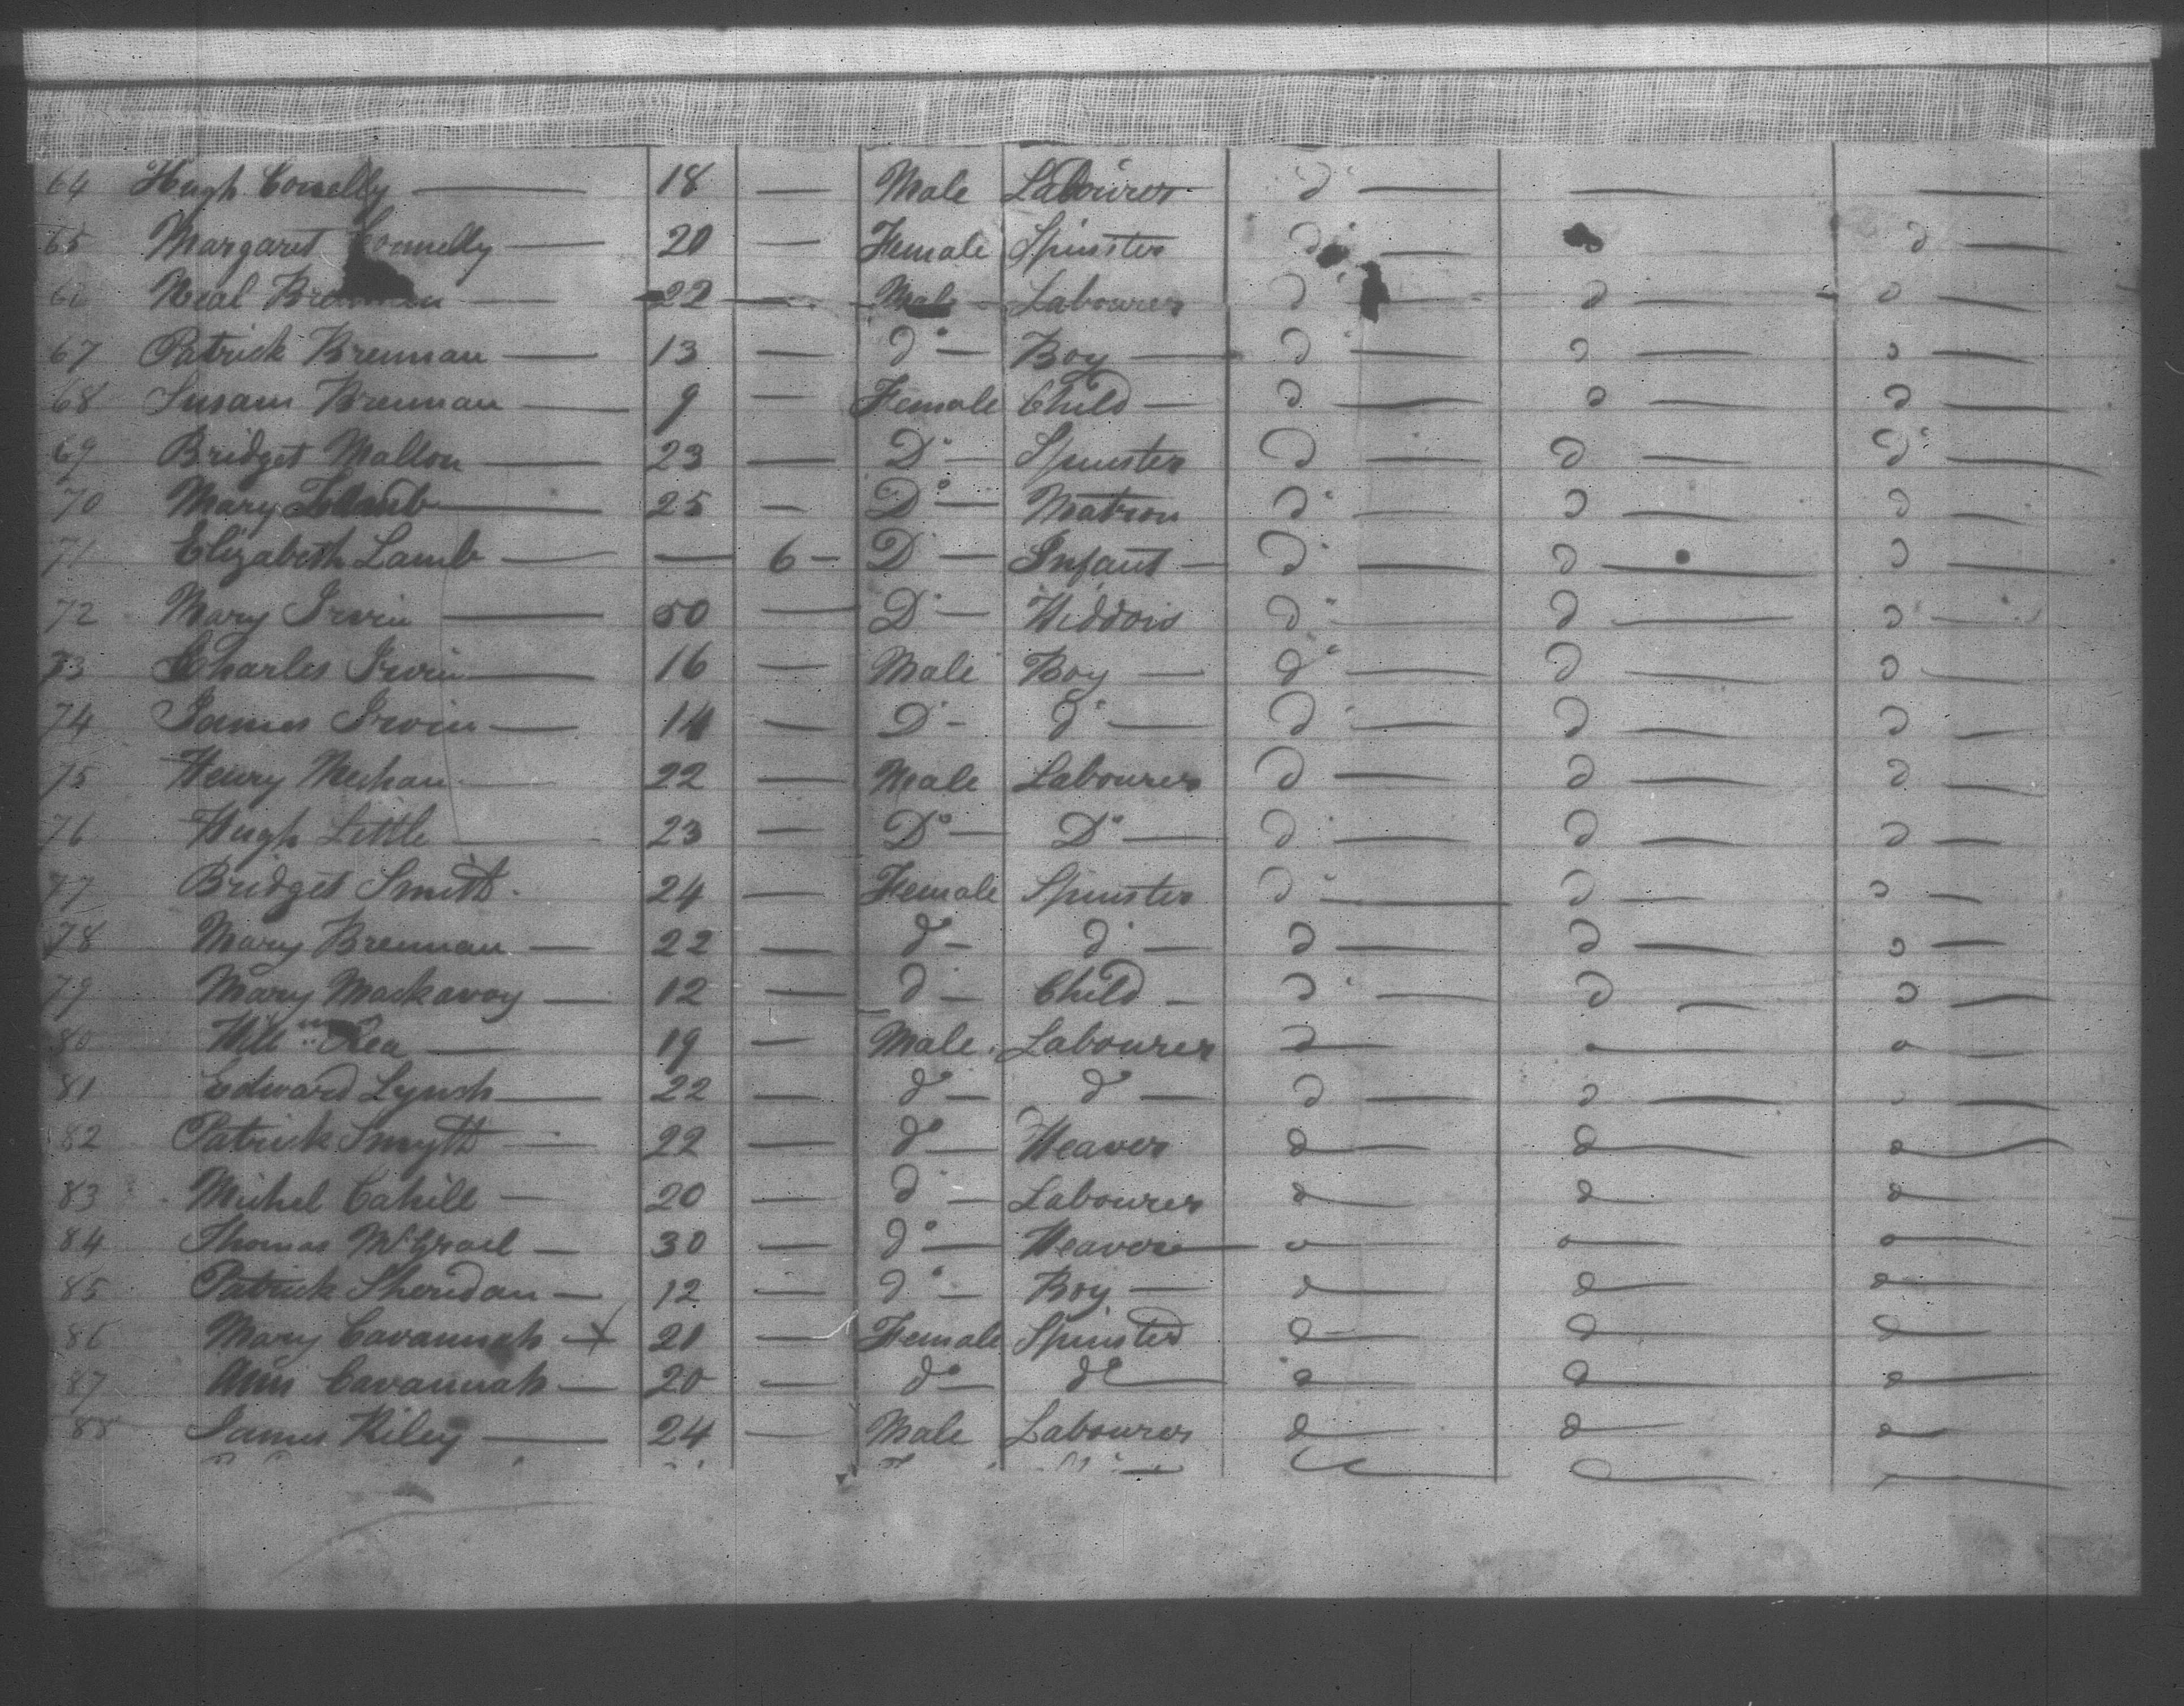 64 Hugh Connelly — 18 — Male Labourer do — — —
65 Margaret Connelly — 20 — Female Spinster do — do —
66 Neal Brennan — 22 — Male Labourer do — do — do —
67 Patrick Brennan — 13 — do — Boy — do — do — do —
68 Susam Brennan — 9 — Female Child — do — do — do —
69 Bridget Mallon — 23 — Do — Spinster do — do — do —
70 Mary Lamb — 25 — Do — Matron do — do — do —
71 Elizabeth Lamb — — 6 — Do — Infant — do — do — do —
72 Mary Irvin — 50 — Do — Widdow do — do — do —
73 Charles Irvin — 16 — Male Boy — do — do — do —
74 James Irvin — 14 — Do — do — do — do — do —
75 Henry Mechan — 22 — Male Labourer do — do — do —
76 Hugh Little — 23 — Do — Do — do — do — do —
77 Bridget Smith 24 — Female Spinster do — do — do —
78 Mary Brennan — 22 — do — do — do — do — do —
79 Mary Mackavoy — 12 — do — Child — do — do — do —
80 Willm Rea — 19 — Male Labourer do — do — do —
81 Edward Lynch — 22 — do — do — do — do — do —
82 Patrick Smyth — 22 — do — Weaver do — do — do —
83 Michel Cahill — 20 — do — Labourer do — do — do —
84 Thomas — 30 — do — Weaver — do — do — do —
85 Patrick Sheridan — 12 — do — Boy — do — do — do —
86 Mary Cavannah — 21 — Female Spinster do — do — do —
87 Ann Cavannah — 20 — do — do — do — do — do —
88 James Riley — 24 — Male Labourer do — do — do —